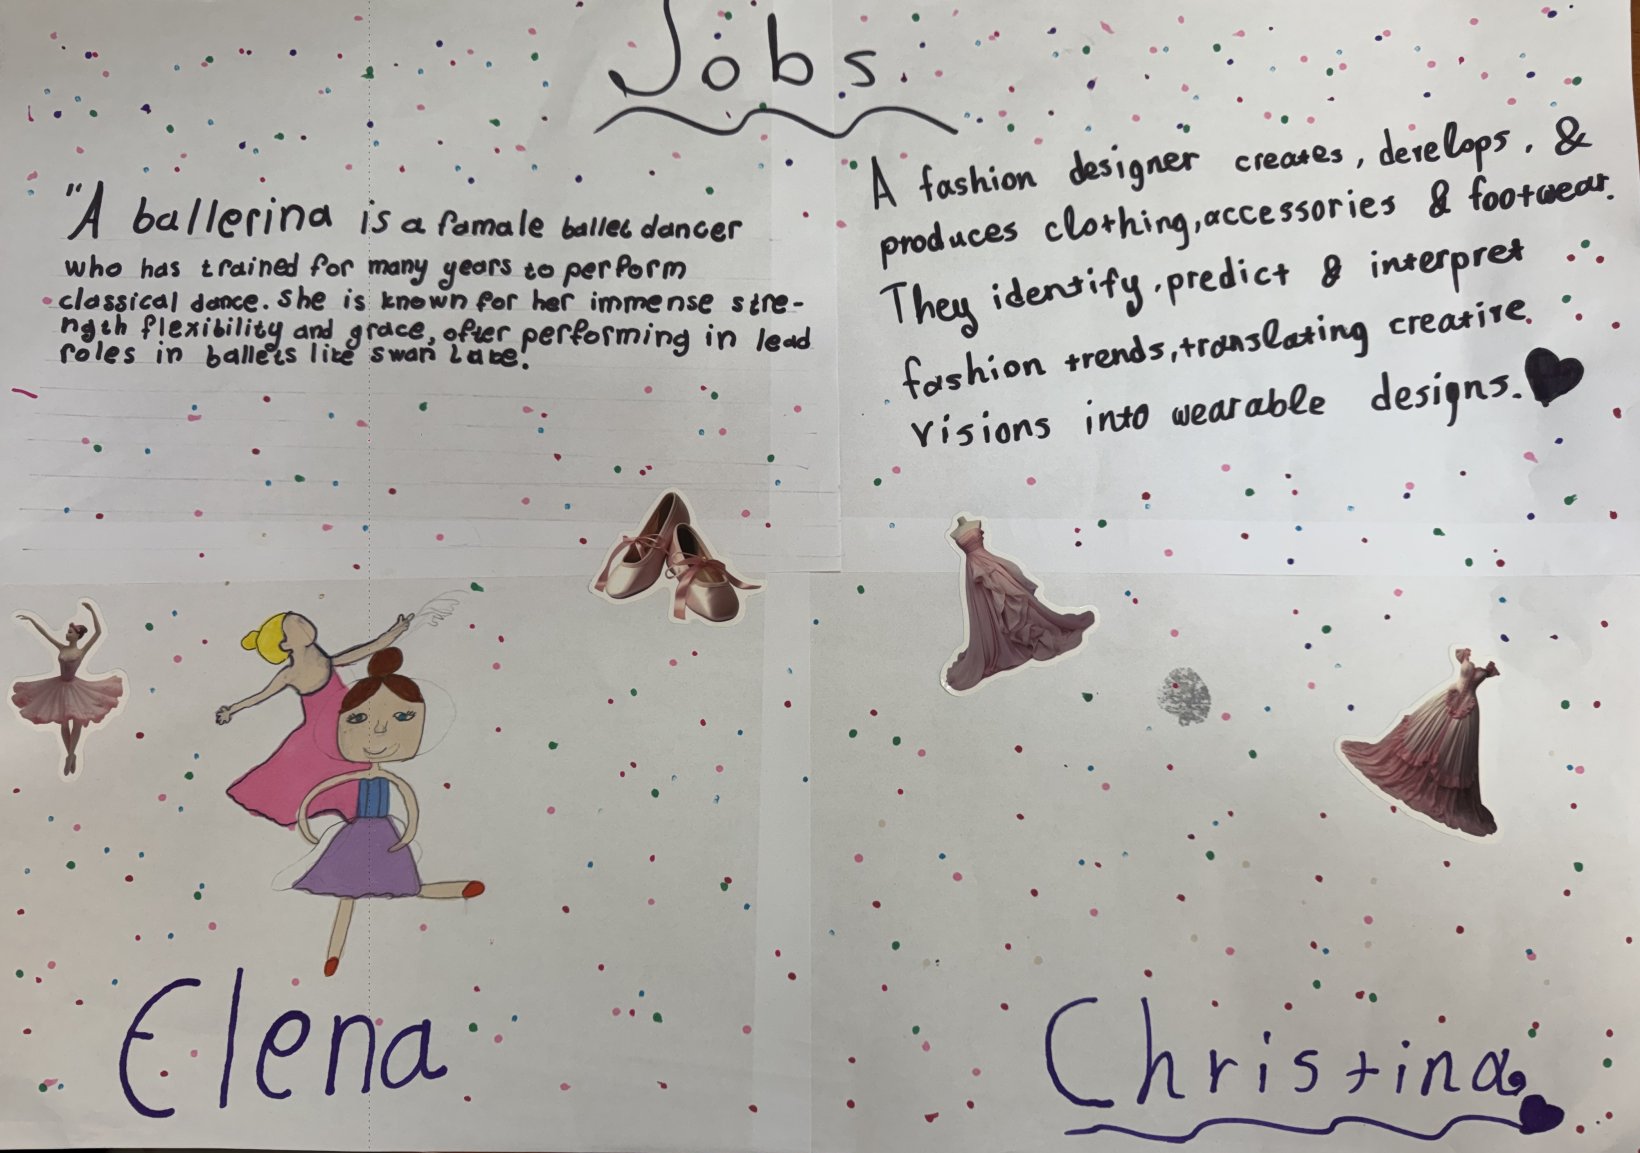 Jobs
"A ballerina is a famale ballet dancer
who has trained for many years to perform
classical dance. She is known for her immense stre-
ngth flexibility and grace, ofter performing in lead
roles in ballets like swan Lake!
A fashion designer creates, develops, &
produces clothing, accessories & footwear.
They identify, predict & interpret
fashion trends, translating creative
visions into wearable designs.
Elena
Christina